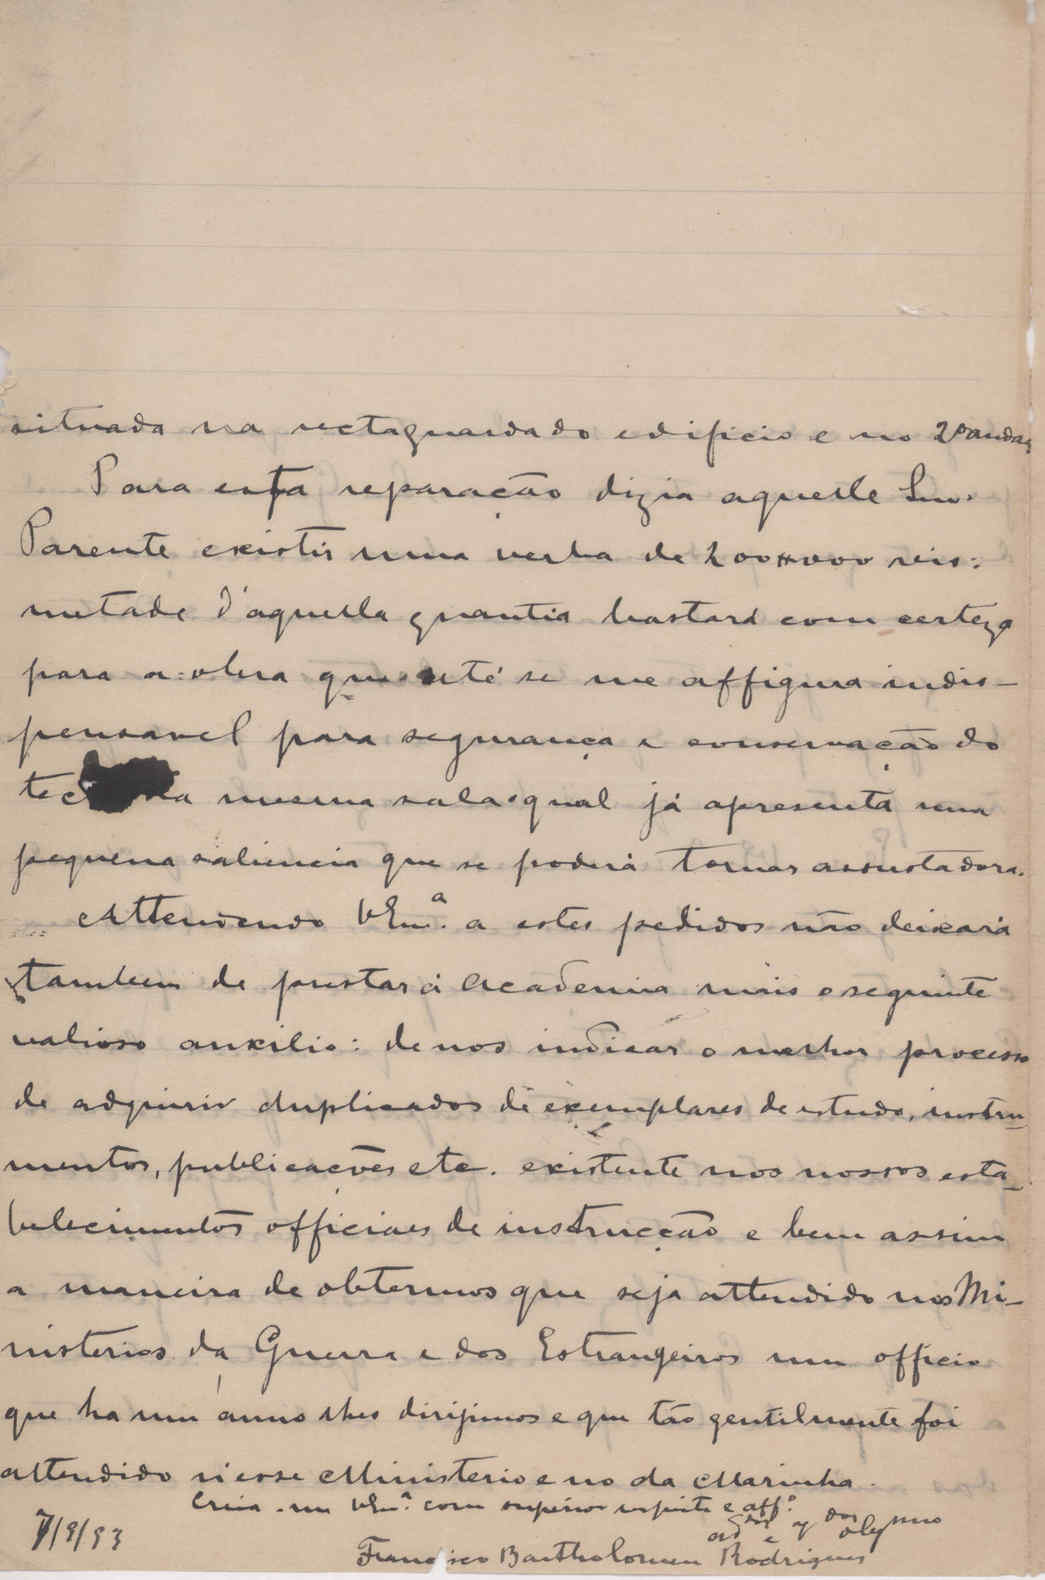 situada na rectaguarda do edificio e no 2º andar
Para esta reparação dizia aquelle Snr.
Parente existir uma verba de 200#000 reis:
metade d'aquella quantia bastará com certeza
para a obra que até se me affigura indis-
pensavel para segurança e conservação do
tec mesma sala o qual já apresenta uma
pequena saliencia que se poderá tornar assustadora.
Attendendo VEx.ª a estes pedidos não deixará
tambem de prestar á Academia mais o seguinte
valioso auxilio: de nos indicar o melhor processo
de adquirir duplicados de exemplares de estudo, instru-
mentos, publicações etc. existente nos nossos esta-
belecimentos officiaes de instrucção e bem assim
a maneira de obtermos que seja attendido nos Mi-
nisterios da Guerra e dos Estrangeiros um officio
que ha um anno lhes dirijimos e que tão gentilmente foi
attendido n'esse Ministerio e no da Marinha.
Creia-me VEx.ª com superior respeito e aff.º
7/9/93
Francisco Bartholomeu Rodrigues